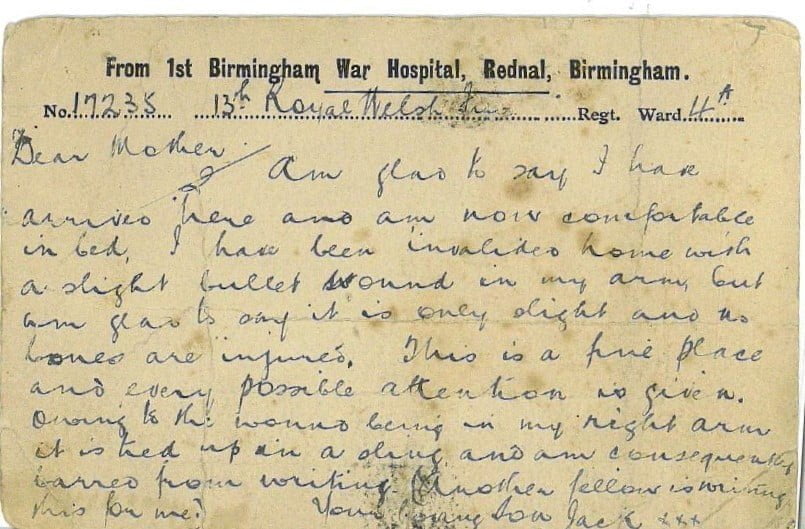 From 1st Birmingham War Hospital, Rednal, Birmingham.
No. 17235 13th Royal Welsh Fus Regt. Ward 4A
Dear Mother.
Am glad to say I have
arrived here and am now comfortable
in bed, I have been invalided home with
a slight bullet wound in my arm, but
am glad to say it is only slight and no
bones are injured. This is a fine place
and every possible attention is given.
Owing to the wound being in my right arm
it is tied up in a sling and am consequently
barred from writing. Another fellow is writing
this for me. Your loving son Jack xxx